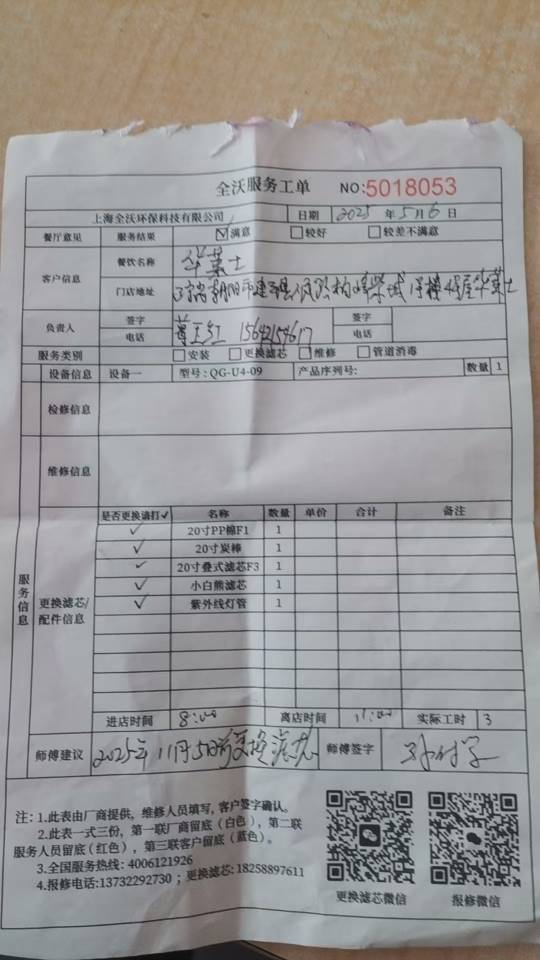 全沃服务工单 NO:5018053
上海全沃环保科技有限公司 日期 2025 年 5 月 6 日
餐厅意见 服务结果 ☑满意 □较好 □较差不满意
客户信息 餐饮名称 华莱士
门店地址 辽宁省朝阳市建平县 华莱士
负责人 签字 签字
电话 15642154617 电话
服务类别 □安装 □更换滤芯 □维修 □管道消毒
设备信息 设备一 型号: QG-U4-09 产品序列号: 数量 1
检修信息
维修信息
服务信息
更换滤芯/配件信息
是否更换请打✓ 名称 数量 单价 合计 备注
✓ 20寸PP棉F1 1
✓ 20寸炭棒 1
✓ 20寸叠式滤芯F3 1
✓ 小白熊滤芯 1
✓ 紫外线灯管 1
进店时间 8:00 离店时间 11:00 实际工时 3
师傅建议 2025年11月5日前更换滤芯 师傅签字
注: 1.此表由厂商提供,维修人员填写,客户签字确认。
2.此表一式三份,第一联厂商留底(白色),第二联
服务人员留底(红色),第三联客户留底(蓝色)。
3.全国服务热线: 4006121926
4.报修电话:13732292730 ; 更换滤芯: 18258897611
更换滤芯微信 报修微信